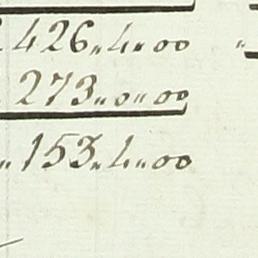 426„4„00
273„0„00
„153„4„00